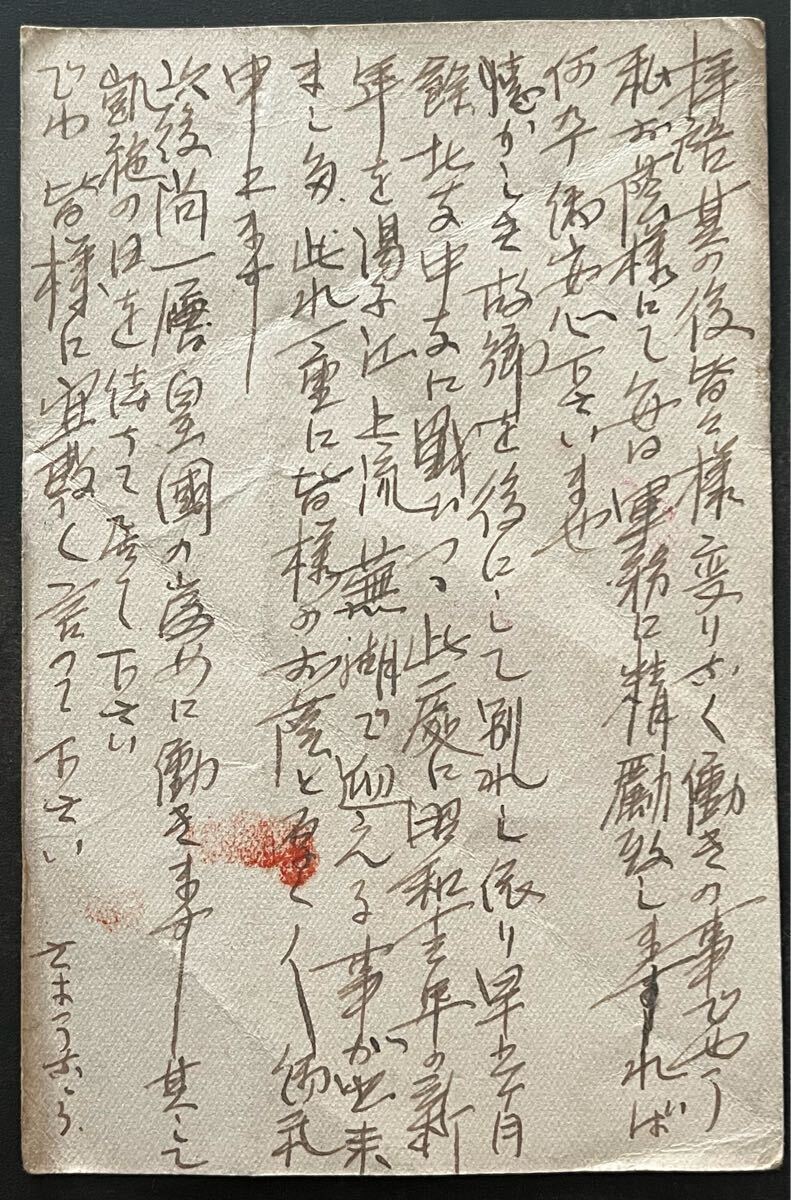 拝啓其の後皆々様変りなく働きの事でせう
私お蔭様にて毎日軍務に精励致しますれば
何卒御安心下さいませ
懐かしき故郷を後にして別れし依り早五ケ月
餘北支中支に戦ひつゝ此處に昭和十三年の新
年を揚子江上流蕪湖で迎える事が出来
ました。此れ一重に皆様のお蔭と厚く〱御礼
申上ます
次後尚一層皇國の為めに働きます其して
凱旋の日を待って居て下さい
でわ皆様に宜敷く言って下さい さようなら